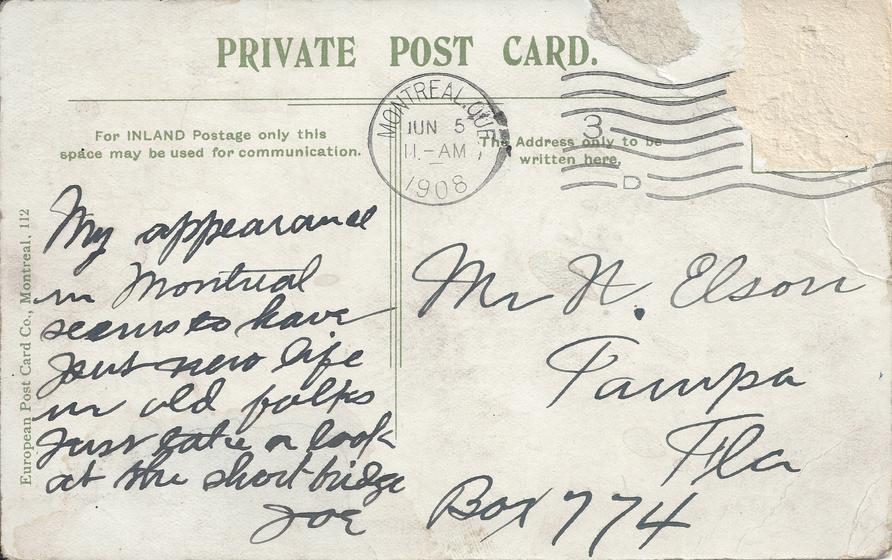 PRIVATE POST CARD.
For INLAND Postage only this
space may be used for communication.
MONTREAL, QUE
JUN 5
11.-AM
1908
3
D
The Address only to be
written here.
European Post Card Co., Montreal, 112
My appearance
in Montreal
seems to have
put new life
in old folks
Just take a look
at the short bridge
Joe
Mr N. Elson
Tampa
Fla
Box 774